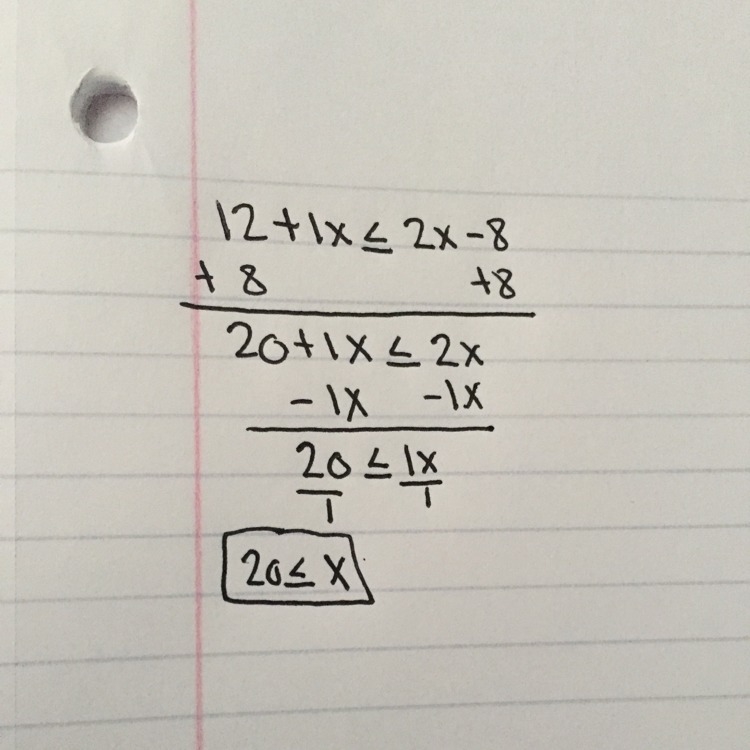 12+1x ≤ 2x-8
+ 8 +8
20+1x ≤ 2x
-1x -1x
20 ≤ 1x
1 1
20 ≤ x